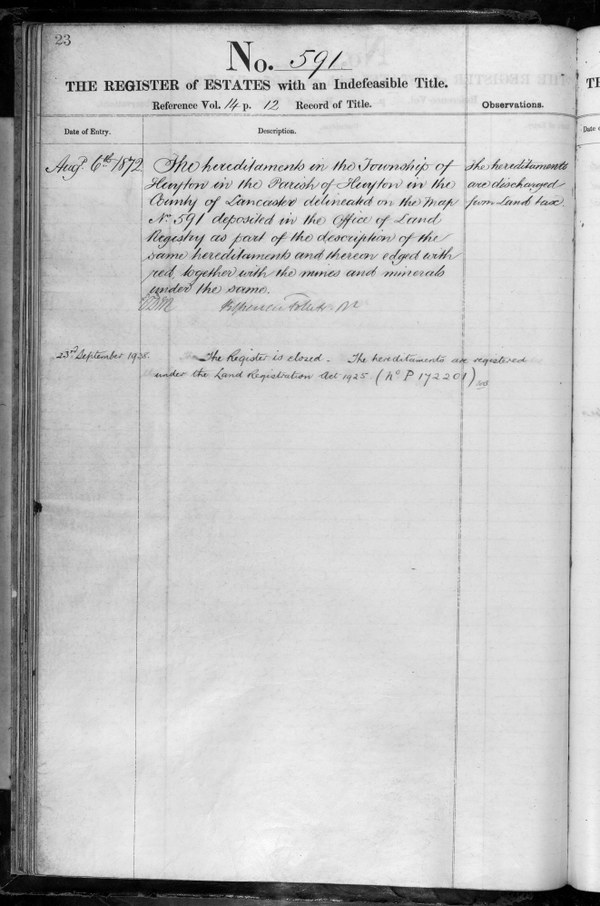 23
No. 591
THE REGISTER of ESTATES with an Indefeasible Title.
Reference Vol. 14 p. 12 Record of Title.
Observations.
Date of Entry.
Description.
Augt 6th 1872
The hereditaments in the Township of
Huyton in the Parish of Huyton in the
County of Lancaster delineated on the Map
No 591 deposited in the Office of Land
Registry as part of the description of the
same hereditaments and thereon edged with
red together with the mines and minerals
under the same.
The hereditaments
are discharged
from Land tax.
23rd September 1938.
The Register is closed. The hereditaments are registered
under the Land Registration Act 1925 (No P 172201)
TH
Date o